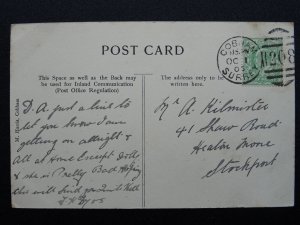 POST CARD
This Space as well as the Back may
be used for Inland Communication
(Post Office Regulation)
The address only to be
written here.
COBHAM
OC 1
05
SURREY
H. Harris, Cobham
D. A. just a line to
let you know I am
getting on allright &
All at home Except Dolly
& she is Pretty Bad Hoping
this will find you quite Well
Mr A Kilminster
41 Shaw Road
Heaton Moor
Stockport